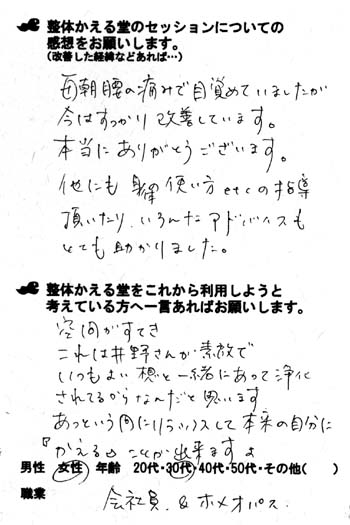 整体かえる堂のセッションについての
感想をお願いします。
(改善した経緯などあれば…)
毎朝腰の痛みで目覚めていましたが
今はすっかり改善しています。
本当にありがとうございます。
他にも 使い方 etcの指導
頂いたり、いろんな アドバイスも
とても助かりました。
整体かえる堂をこれから利用しようと
考えている方へ一言あればお願いします。
空間がすてき
これは井野さんが素敵で
いつもよい 想と一緒にあって浄化
されてるからなんだと思います
あっという間にリラックスして本来の自分に
『かえる』ことが出来ますよ
男性 女性 年齢 20代・30代・40代・50代・その他( )
職業 会社員 & ホメオパス.